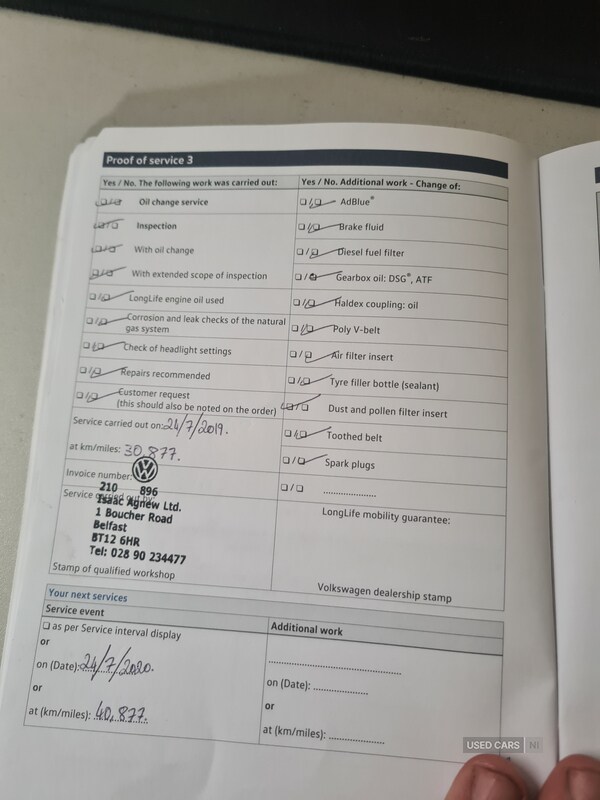 Proof of service 3
Yes / No. The following work was carried out:
☐/☐ Oil change service
☐/☐ Inspection
☐/☐ With oil change
☐/☐ With extended scope of inspection
☐/☐ LongLife engine oil used
☐/☐ Corrosion and leak checks of the natural
gas system
☐/☐ Check of headlight settings
☐/☐ Repairs recommended
☐/☐ Customer request
(this should also be noted on the order)
Service carried out on: 24/7/2019.
at km/miles: 30,877.
Invoice number:
210 896
Service carried out by:
Isaac Agnew Ltd.
1 Boucher Road
Belfast
BT12 6HR
Tel: 028 90 234477
Stamp of qualified workshop
Yes / No. Additional work - Change of:
☐/☐ AdBlue®
☐/☐ Brake fluid
☐/☐ Diesel fuel filter
☐/☐ Gearbox oil: DSG®, ATF
☐/☐ Haldex coupling: oil
☐/☐ Poly V-belt
☐/☐ Air filter insert
☐/☐ Tyre filler bottle (sealant)
☐/☐ Dust and pollen filter insert
☐/☐ Toothed belt
☐/☐ Spark plugs
☐/☐ ......................
LongLife mobility guarantee:
Volkswagen dealership stamp
Your next services
Service event
☐ as per Service interval display
or
on (Date): 24/7/2020.
or
at (km/miles): 40,877.
Additional work
......................................................
on (Date): ......................
or
at (km/miles): ......................
USED CARS NI